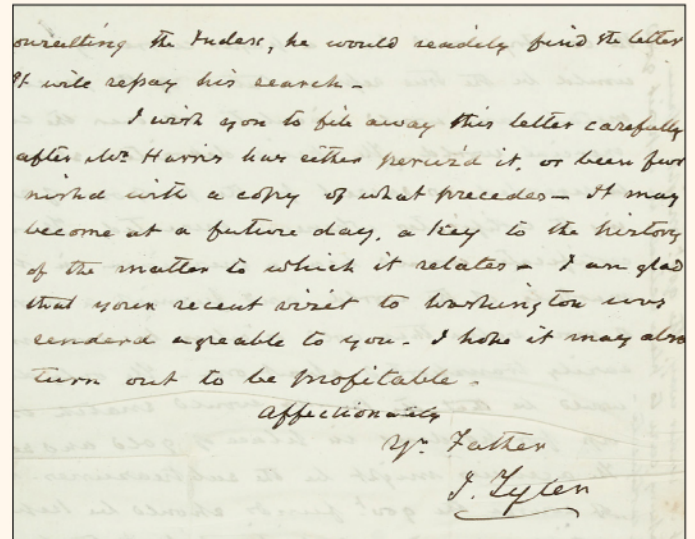 onsulting the Index, he would readily find the letter
It will repay his search –
I wish you to file away this letter carefully
after Mr Harris has either peruz'd it, or been fur
nishd with a copy of what precedes – It may
become at a future day, a key to the history
of the matter to which it relates – I am glad
that your recent visit to Washington was
renderd agreable to you. I hope it may also
turn out to be profitable.
Affectionately
Yr. Father
J. Tyler